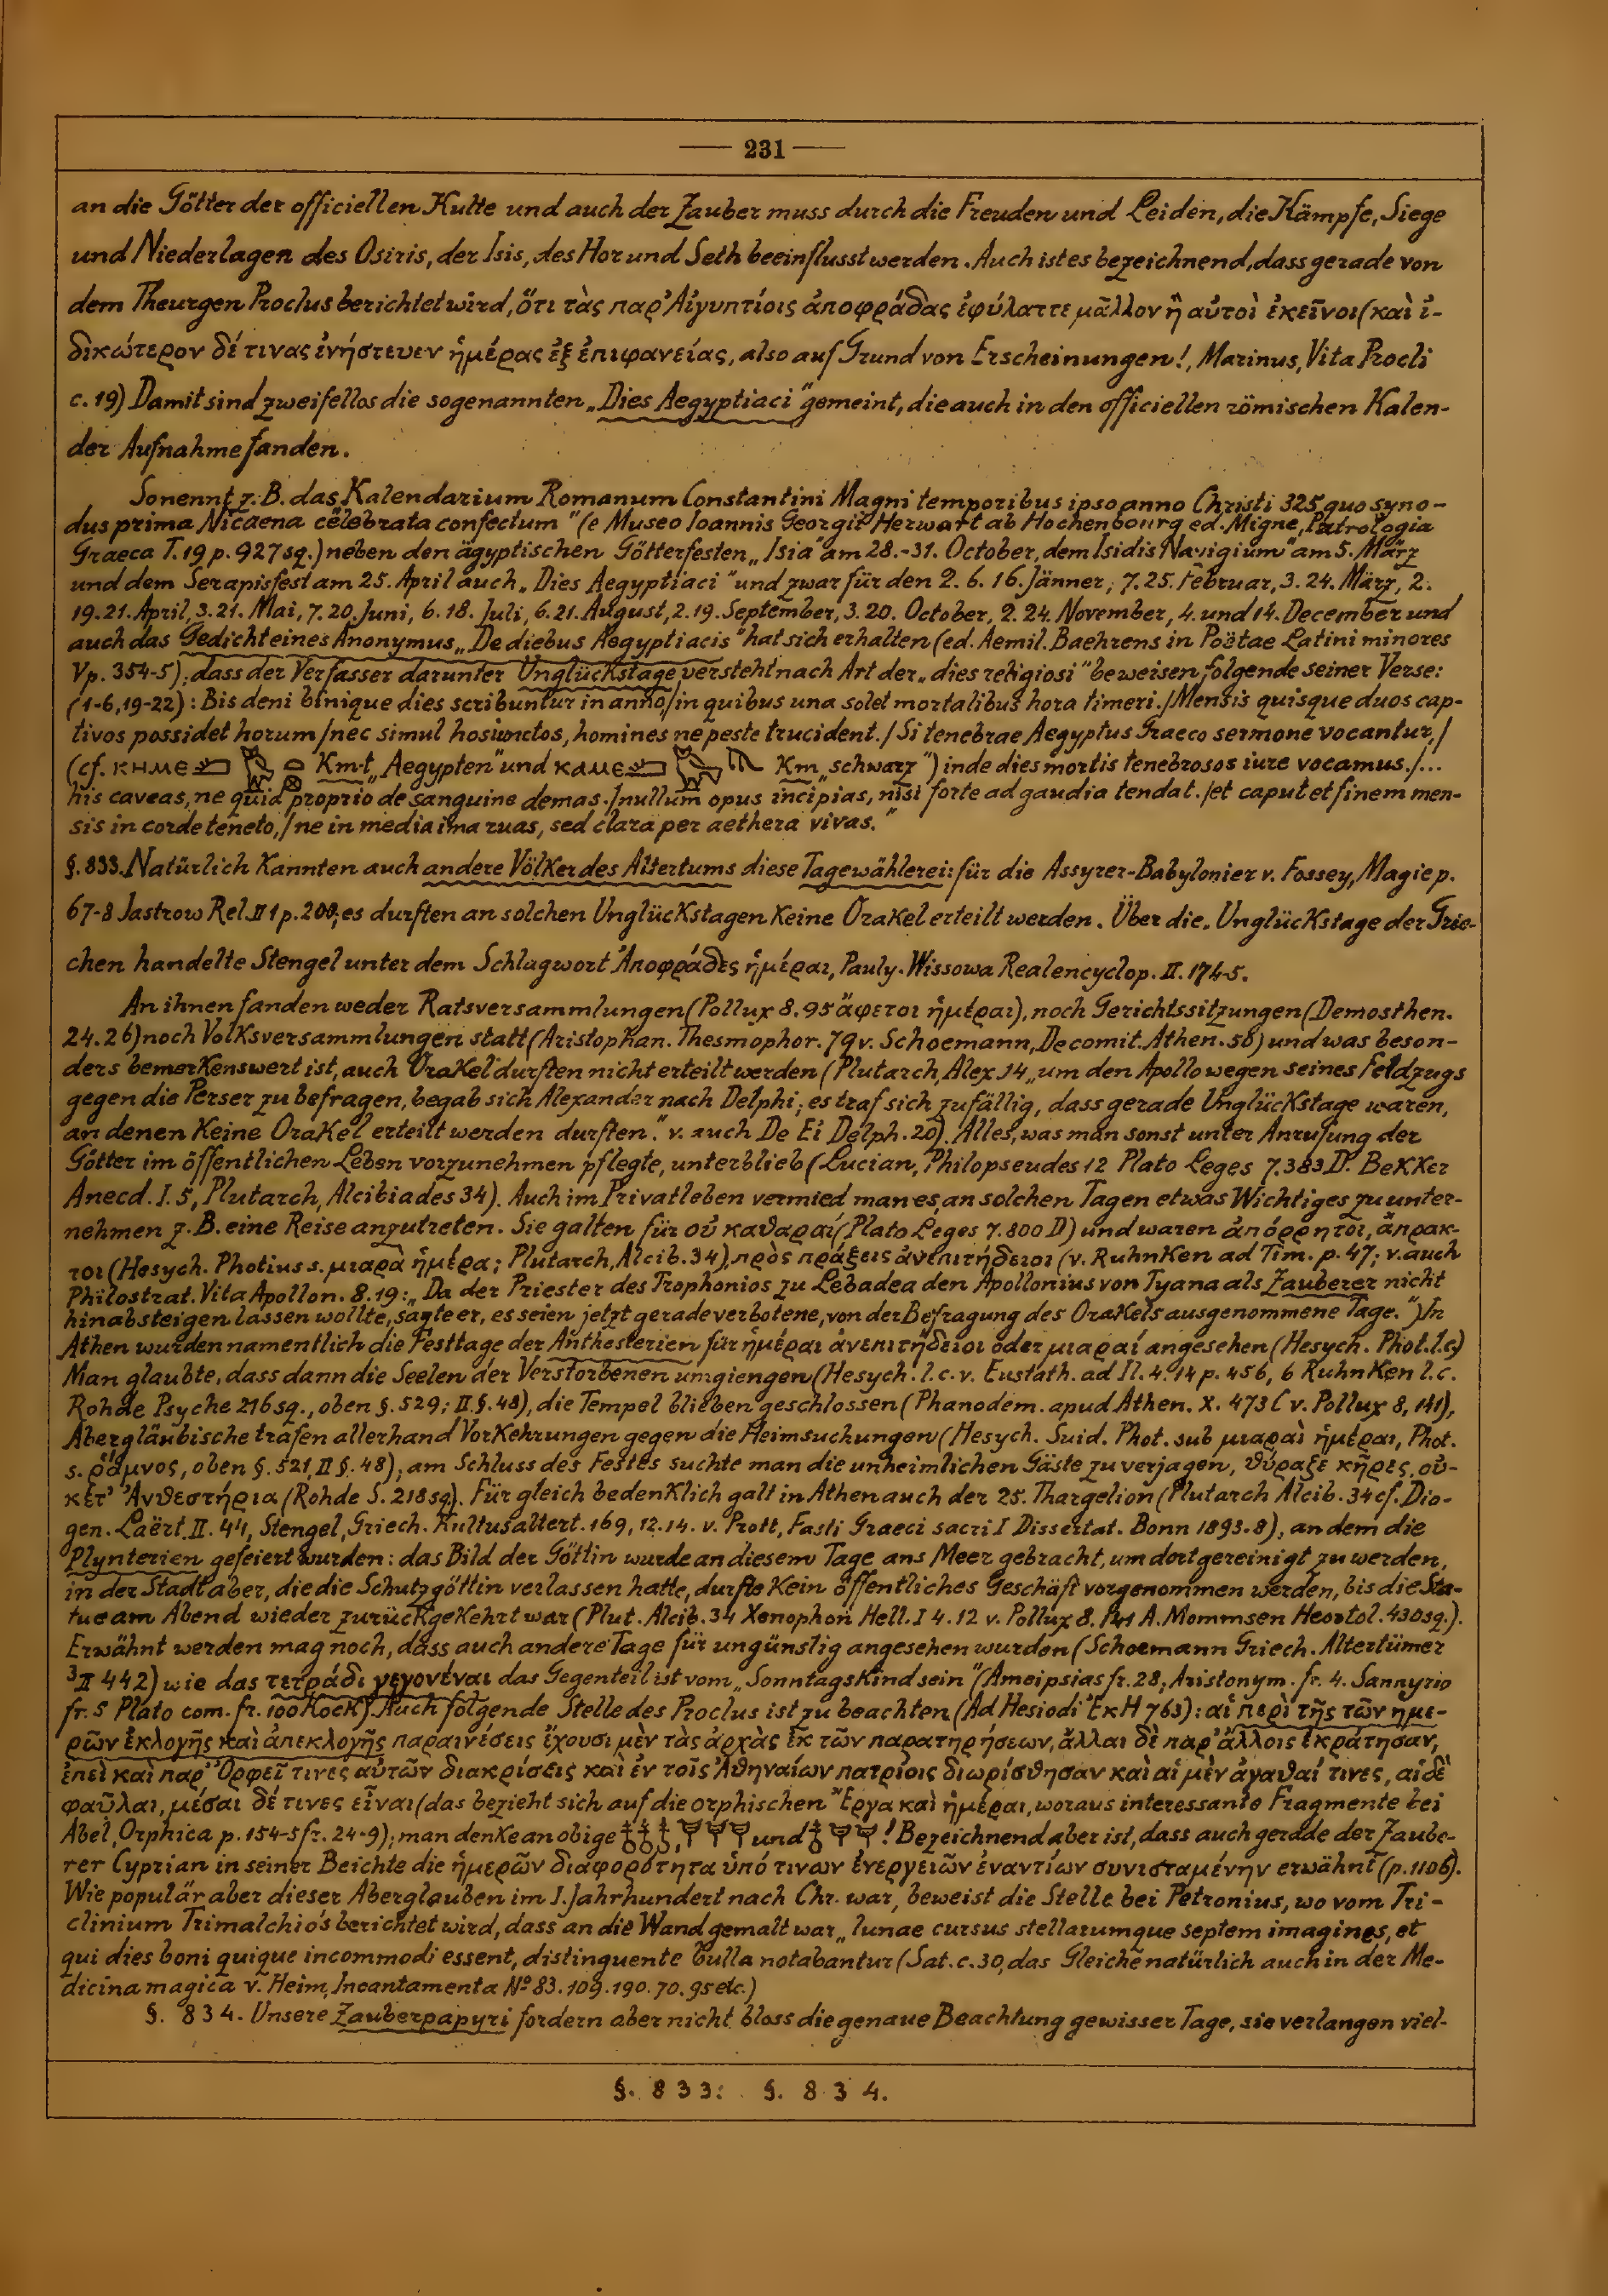 — 231 —
an die Götter der officiellen Kulte und auch der Zauber muss durch die Freuden und Leiden, die Kämpfe, Siege
und Niederlagen des Osiris, der Isis, des Hor und Seth beeinflusst werden. Auch ist es bezeichnend, dass gerade von
dem Theurgen Proclus berichtet wird, ὅτι τὰς παρ' Αἰγυπτίοις ἀποφράδας ἐφύλαττε μᾶλλον ἢ αὐτοὶ ἐκεῖνοι (καὶ ἰ-
δικώτερον δέ τινας ἐνήστευεν ἡμέρας ἐξ ἐπιφανείας, also auf Grund von Erscheinungen!, Marinus, Vita Procli
c. 19) Damit sind zweifellos die sogenannten „Dies Aegyptiaci" gemeint, die auch in den officiellen römischen Kalen-
der Aufnahme fanden.
So nennt z. B. das Kalendarium Romanum Constantini Magni temporibus ipso anno Christi 325 quo syno-
dus prima Nicaena celebrata confectum" (e Museo Ioannis Georgii Herwart ab Hochenbourg ed. Migne, Patrologia
Graeca T. 19 p. 927 sq.) neben den ägyptischen Götterfesten „Isia" am 28.-31. October, dem Isidis Navigium" am 5. März
und dem Serapisfest am 25. April auch „Dies Aegyptiaci" und zwar für den 2. 6. 16. Jänner, 7. 25. Februar, 3. 24. März, 2.
19. 21. April, 3. 21. Mai, 7. 20. Juni, 6. 18. Juli, 6. 21. August, 2. 19. September, 3. 20. October, 2. 24. November, 4. und 14. December und
auch das Gedicht eines Anonymus „De diebus Aegyptiacis" hat sich erhalten (ed. Aemil. Baehrens in Poëtae Latini minores
V p. 354-5); dass der Verfasser darunter Unglückstage versteht nach Art der „dies religiosi" beweisen folgende seiner Verse:
(1-6, 19-22): Bis deni binique dies scribuntur in anno / in quibus una solet mortalibus hora timeri. / Mensis quisque duos cap-
tivos possidet horum / nec simul hos iunctos, homines ne peste trucident. / Si tenebrae Aegyptus Graeco sermone vocantur, /
(cf. ⲕⲏⲙⲉ Km·t „Aegypten" und ⲕⲁⲙⲉ Km „schwarz") inde dies mortis tenebrosos iure vocamus. /...
his caveas, ne quid proprio de sanguine demas. / nullum opus incipias, nisi forte ad gaudia tendat. / et caput et finem men-
sis in corde teneto, / ne in media ima ruas, sed clara per aethera vivas."
§. 833. Natürlich kannten auch andere Völker des Altertums diese Tagewählerei: für die Assyrer-Babylonier v. Fossey, Magie p.
67-8 Jastrow Rel. II 1 p. 200; es durften an solchen Unglückstagen keine Orakel erteilt werden. Über die Unglückstage der Grie-
chen handelte Stengel unter dem Schlagwort Ἀποφράδες ἡμέραι, Pauly-Wissowa Realencyclop. II. 174-5.
An ihnen fanden weder Ratsversammlungen (Pollux 8. 95 ἄφετοι ἡμέραι), noch Gerichtssitzungen (Demosthen.
24. 26) noch Volksversammlungen statt (Aristophan. Thesmophor. 79 v. Schoemann, De comit. Athen. 58) und was beson-
ders bemerkenswert ist, auch Orakel durften nicht erteilt werden (Plutarch, Alex. 14 „um den Apollo wegen seines Feldzugs
gegen die Perser zu befragen, begab sich Alexander nach Delphi; es traf sich zufällig, dass gerade Unglückstage waren,
an denen keine Orakel erteilt werden durften." v. auch De Ei Delph. 20). Alles, was man sonst unter Anrufung der
Götter im öffentlichen Leben vorzunehmen pflegte, unterblieb (Lucian, Philopseudes 12 Plato Leges 7. 383 D. Bekker
Anecd. I. 5, Plutarch, Alcibiades 34). Auch im Privatleben vermied man es, an solchen Tagen etwas Wichtiges zu unter-
nehmen z. B. eine Reise anzutreten. Sie galten für οὐ καθαραί (Plato Leges 7. 800 D) und waren ἀπόρρητοι, ἄπρακ-
τοι (Hesych. Photius s. μιαρὰ ἡμέρα; Plutarch, Alcib. 34), πρὸς πράξεις ἀνεπιτήδειοι (v. Ruhnken ad Tim. p. 47; v. auch
Philostrat. Vita Apollon. 8. 19: „Da der Priester des Trophonios zu Lebadea den Apollonius von Tyana als Zauberer nicht
hinabsteigen lassen wollte, sagte er, es seien jetzt gerade verbotene, von der Befragung des Orakels ausgenommene Tage.") In
Athen wurden namentlich die Festtage der Anthesterien für ἡμέραι ἀνεπιτήδειοι oder μιαραί angesehen (Hesych. Phot. l.c)
Man glaubte, dass dann die Seelen der Verstorbenen umgiengen (Hesych. l. c. v. Eustath. ad Il. 4. 14 p. 456, 6 Ruhnken l. c.
Rohde Psyche 216 sq., oben §. 529; II. §. 48), die Tempel blieben geschlossen (Phanodem. apud Athen. X. 473 C v. Pollux 8, 141),
Abergläubische trafen allerhand Vorkehrungen gegen die Heimsuchungen (Hesych. Suid. Phot. sub μιαραὶ ἡμέραι, Phot.
s. ῥάμνος, oben §. 521, II §. 48); am Schluss des Festes suchte man die unheimlichen Gäste zu verjagen, θύραξε κῆρες, οὐ-
κέτ' Ἀνθεστήρια (Rohde S. 218 sq). Für gleich bedenklich galt in Athen auch der 25. Thargelion (Plutarch Alcib. 34 cf. Dio-
gen. Laërt. II. 44, Stengel, Griech. Kultusaltert. 169, 12. 14. v. Prott, Fasti Graeci sacri I Dissertat. Bonn 1893. 8), an dem die
Plynterien gefeiert wurden: das Bild der Göttin wurde an diesem Tage ans Meer gebracht, um dort gereinigt zu werden,
in der Stadt aber, die die Schutzgöttin verlassen hatte, durfte kein öffentliches Geschäft vorgenommen werden, bis die Sta-
tue am Abend wieder zurückgekehrt war (Plut. Alcib. 34 Xenophon Hell. I 4. 12 v. Pollux 8. 141 A. Mommsen Heortol. 430 sq.).
Erwähnt werden mag noch, dass auch andere Tage für ungünstig angesehen wurden (Schoemann Griech. Altertümer
³II 442) wie das τετράδι γεγονέναι das Gegenteil ist vom „Sonntagskind sein" (Ameipsias fr. 28, Aristonym. fr. 4. Sannyrio
fr. 5 Plato com. fr. 100 Kock). Auch folgende Stelle des Proclus ist zu beachten (Ad Hesiodi ΕκΗ 763): αἱ περὶ τῆς τῶν ημε-
ρῶν ἐκλογῆς καὶ ἀπεκλογῆς παραινέσεις ἔχουσι μὲν τὰς ἀρχὰς ἐκ τῶν παρατηρήσεων, ἄλλαι δὲ παρ' ἄλλοις ἐκράτησαν,
ἐπεὶ καὶ παρ' Ὀρφεῖ τινες αὐτῶν διακρίσεις καὶ ἐν τοῖς Ἀθηναίων πατρίοις διωρίσθησαν καὶ αἱ μὲν ἀγαθαί τινες, αἱ δὲ
φαῦλαι, μέσαι δέ τινες εἶναι (das bezieht sich auf die orphischen Ἔργα καὶ ἡμέραι, woraus interessante Fragmente bei
Abel, Orphica p. 154-5 fr. 24-9); man denke an obige und ! Bezeichnend aber ist, dass auch gerade der Zaube-
rer Cyprian in seiner Beichte die ἡμερῶν διαφορότητα ὑπό τινων ἐνεργειῶν ἐναντίων συνισταμένην erwähnt (p. 1106).
Wie populär aber dieser Aberglauben im 1. Jahrhundert nach Chr. war, beweist die Stelle bei Petronius, wo vom Tri-
clinium Trimalchio's berichtet wird, dass an die Wand gemalt war „lunae cursus stellarumque septem imagines, et
qui dies boni quique incommodi essent, distinguente bulla notabantur (Sat. c. 30, das Gleiche natürlich auch in der Me-
dicina magica v. Heim, Incantamenta Nº 83. 109. 190. 70. 95 etc.)
§. 834. Unsere Zauberpapyri fordern aber nicht bloss die genaue Beachtung gewisser Tage, sie verlangen viel-
§. 833: §. 834.